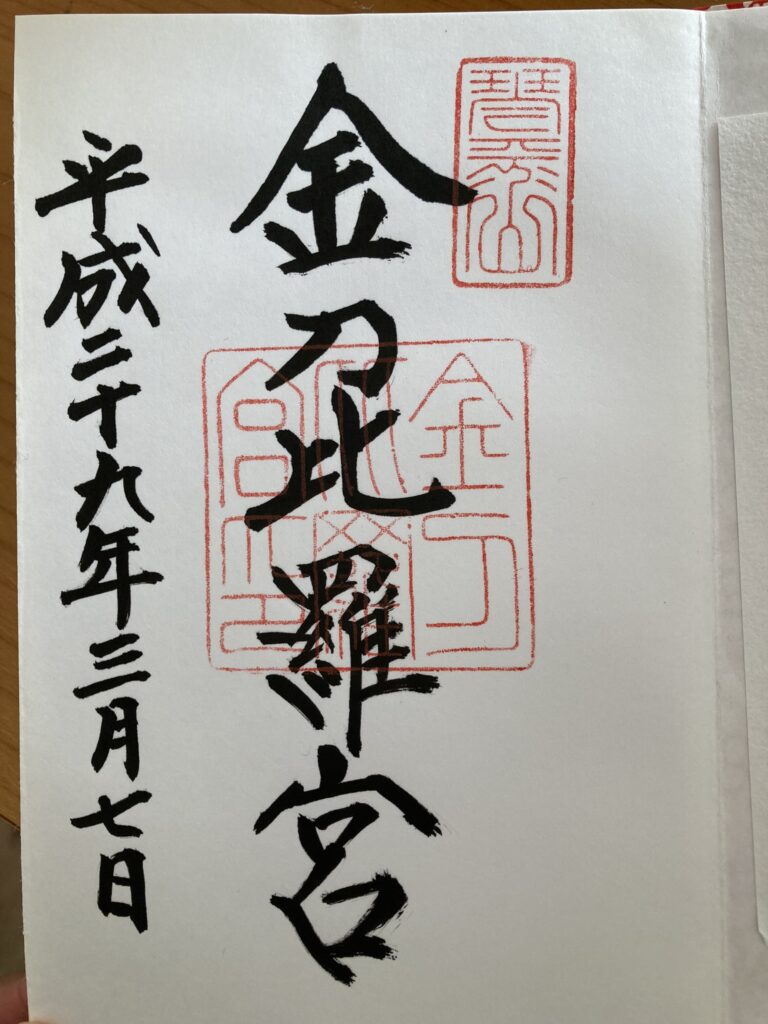 琴平山
金刀比羅宮
金刀
比羅
宮印
平成二十九年三月七日